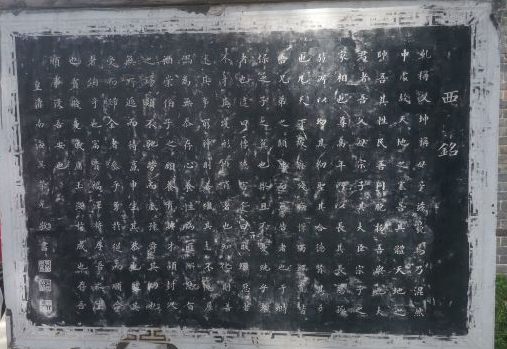 西銘
乾稱父坤稱母予茲藐焉乃混然
中處故天地之塞吾其體天地之
帥吾其性民吾同胞物吾與也大
君者吾父母宗子其大臣宗子之
家相也尊高年所以長其長慈孤
弱所以幼其幼聖其合德賢其秀
也凡天下疲癃殘疾惸獨鰥寡皆
吾兄弟之顛連而無告者也于時
保之子之翼也樂且不憂純乎孝
者也違曰悖德害仁曰賊濟惡者
不才其踐形惟肖者也知化則善
述其事窮神則善繼其志不愧屋
漏為無忝存心養性為匪懈惡旨
酒崇伯子之顧養育英才潁封人
之錫類不弛勞而底豫舜其功也
無所逃而待烹申生其恭也體其
受而歸全者參乎勇於從而順令
者伯奇也富貴福澤將厚吾之生
也貧賤憂戚庸玉汝於成也存吾
順事沒吾寧也